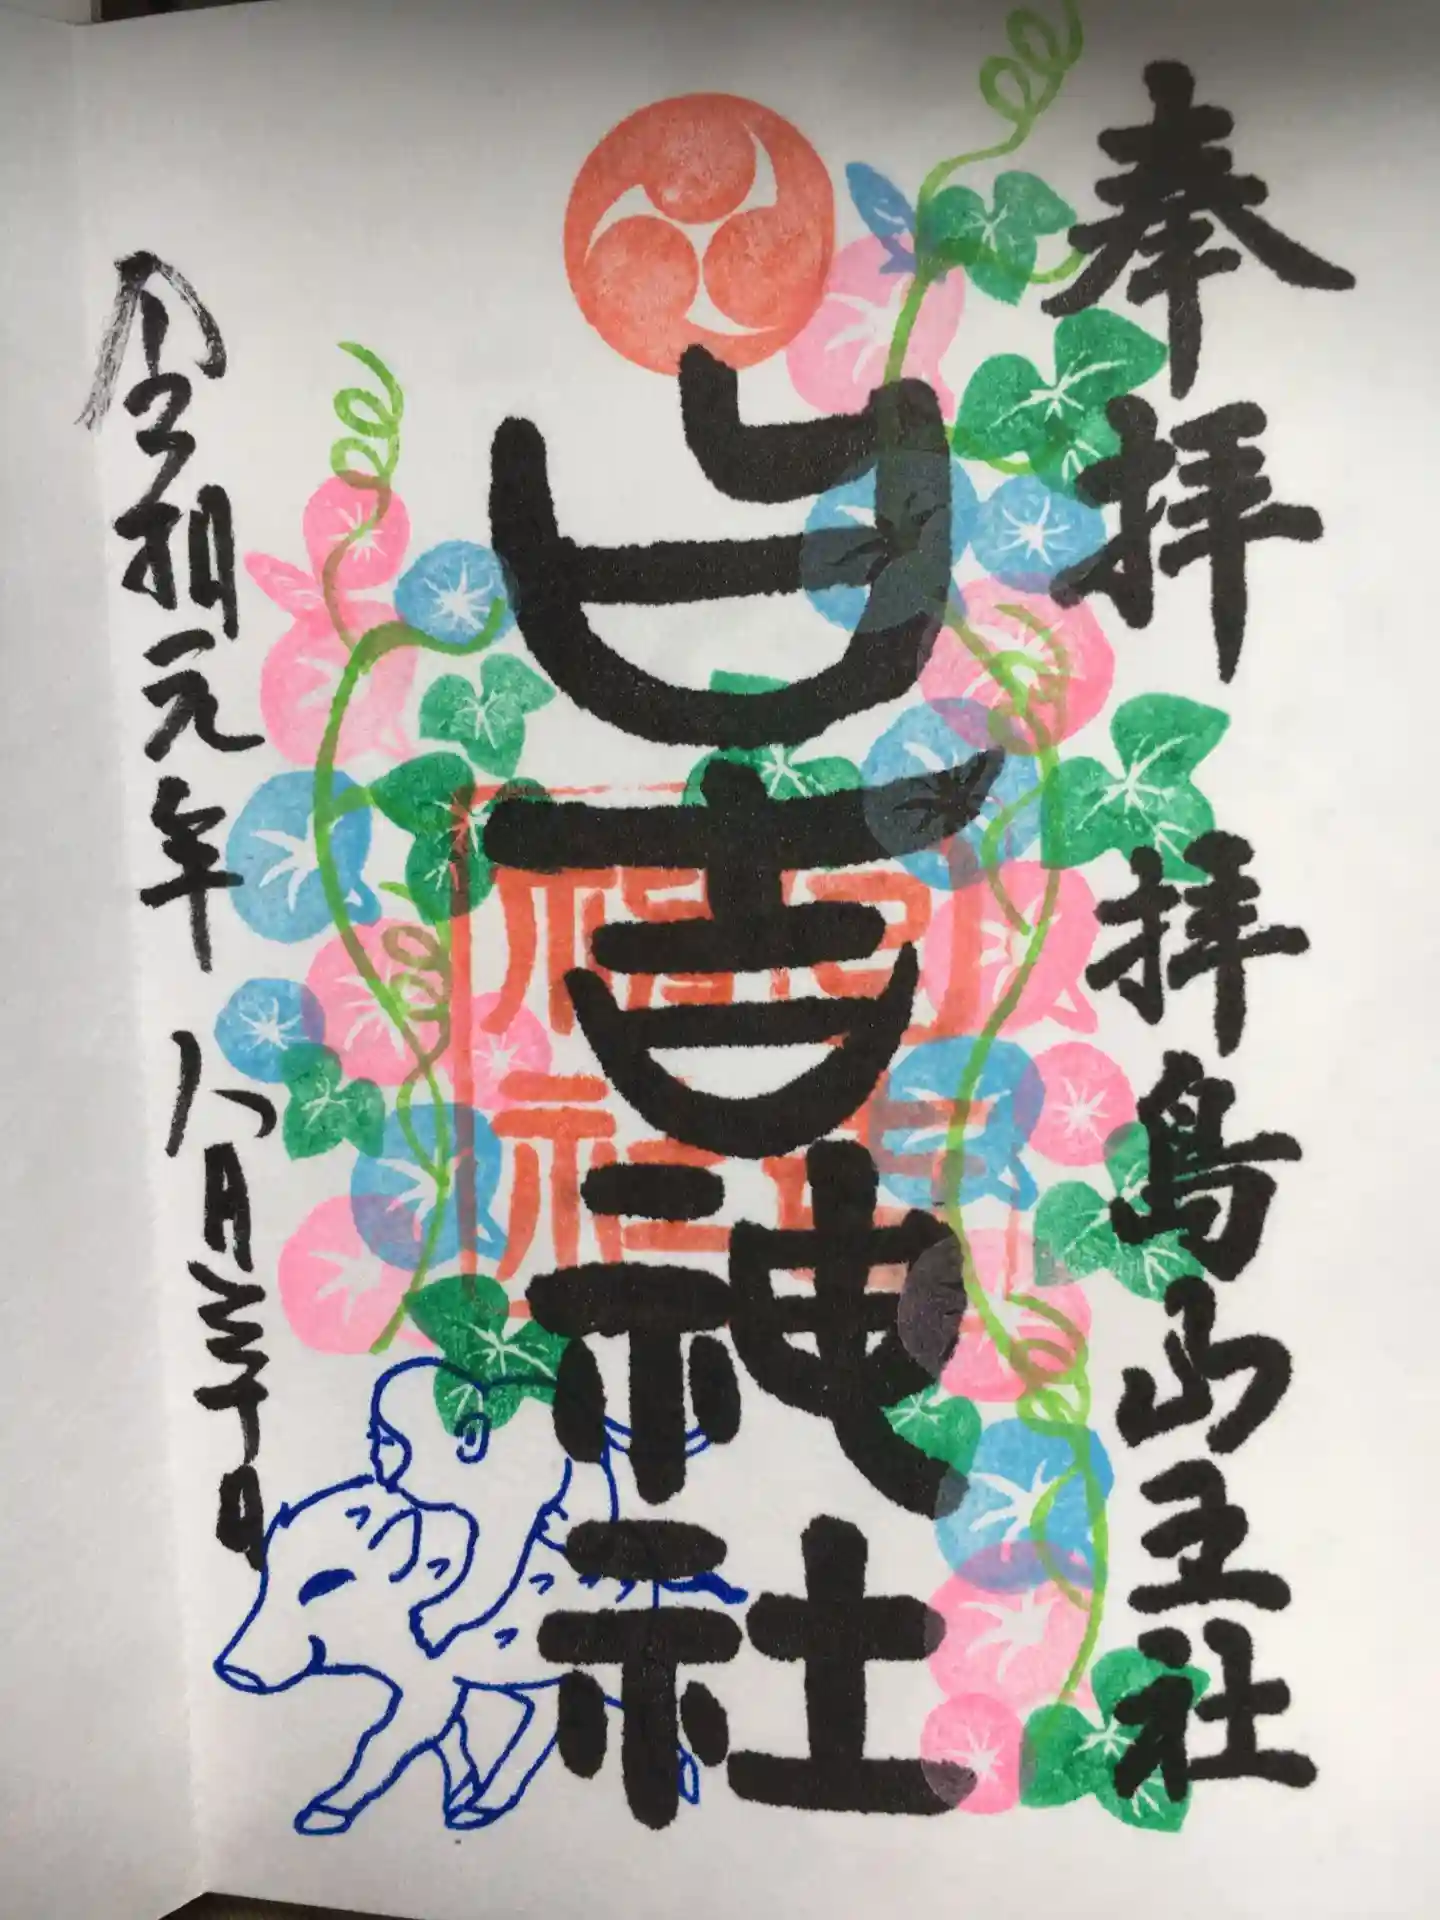 奉拝 拝島山王社
日吉神社
令和元年 八月三十日